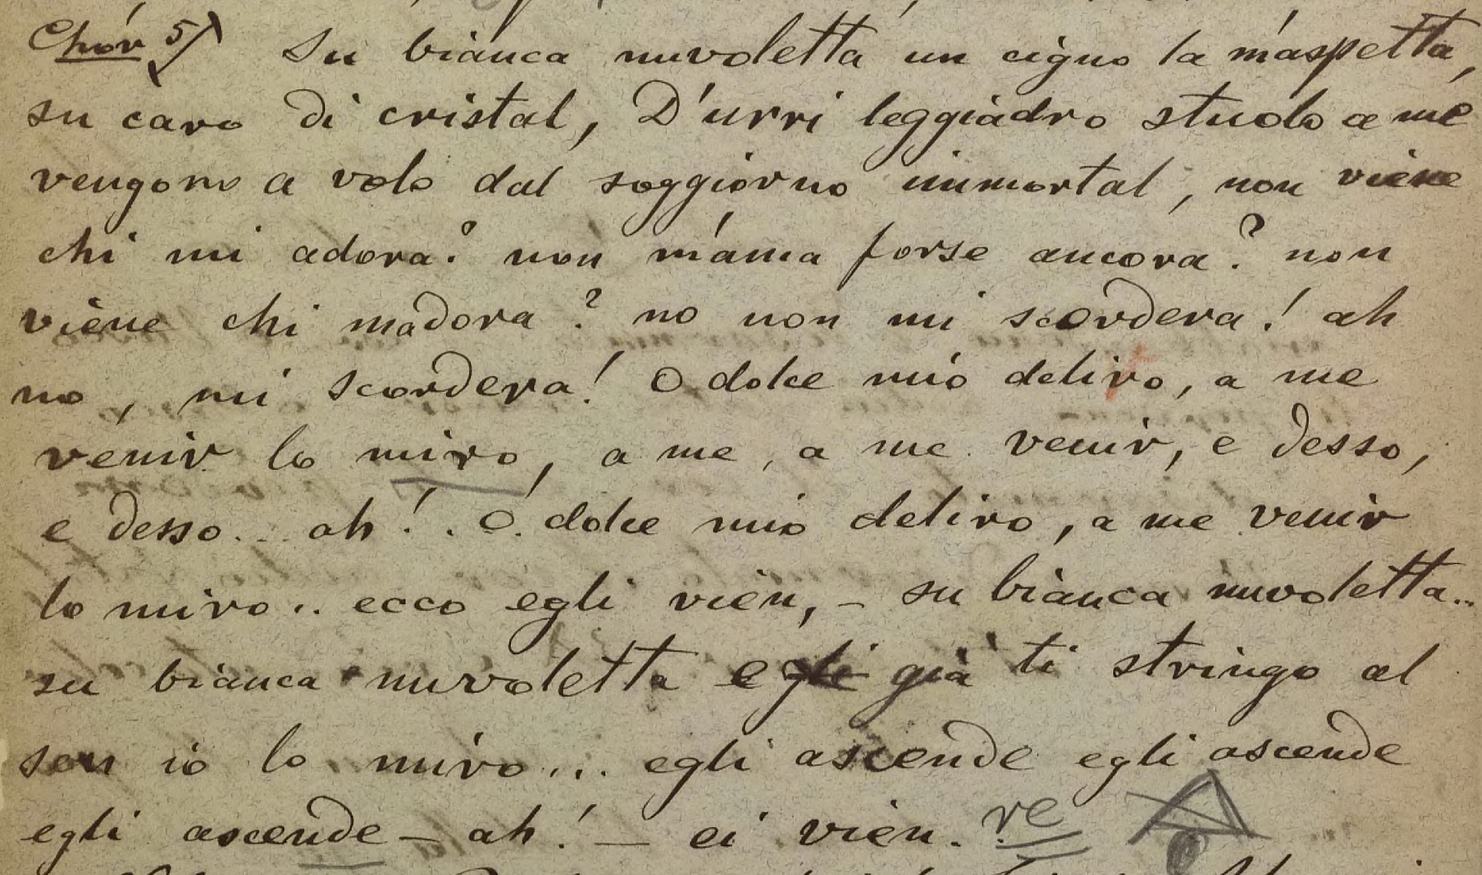 Chór 5)  Su bianca nuvoletta un cigno la m'aspetta,
su caro di cristal, D'urri leggiadro stuolo a me
vengono a volo dal soggiorno immortal, non viene
chi mi adora? non m'ama forse ancora? non
viène chi madora? no non mi scordera! ah
no, mi scordera! O dolce mio deliro, a me
venir lo miro, a me, a me venir, e desso,
e desso... ah!. O dolce mio deliro, a me venir
lo miro.. ecco egli vien, - su bianca nuvoletta..
su bianca nuvoletta egli già ti stringo al
sen io lo miro... egli ascende egli ascende
egli ascende - ah! - ei vien. re